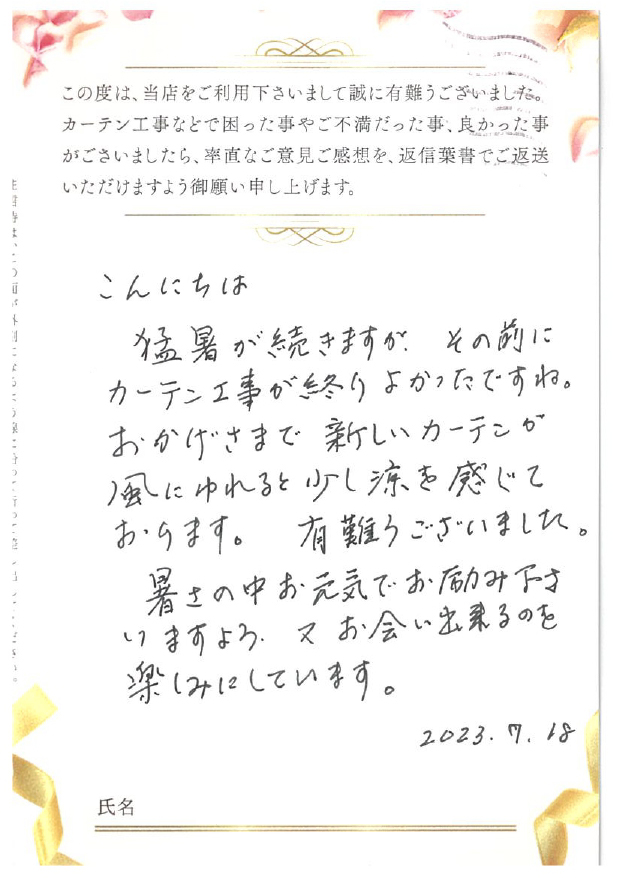 この度は、当店をご利用下さいまして誠に有難うございました。
カーテン工事などで困った事やご不満だった事、良かった事
がございましたら、率直なご意見ご感想を、返信葉書でご返送
いただけますよう御願い申し上げます。
こんにちは
猛暑が続きますが、その前に
カーテン工事が終りよかったですね。
おかげさまで新しいカーテンが
風にゆれると少し涼を感じて
おります。有難うございました。
暑さの中お元気でお励み下さ
いますよう、又お会い出来るのを
楽しみにしています。
2023.7.18
氏名